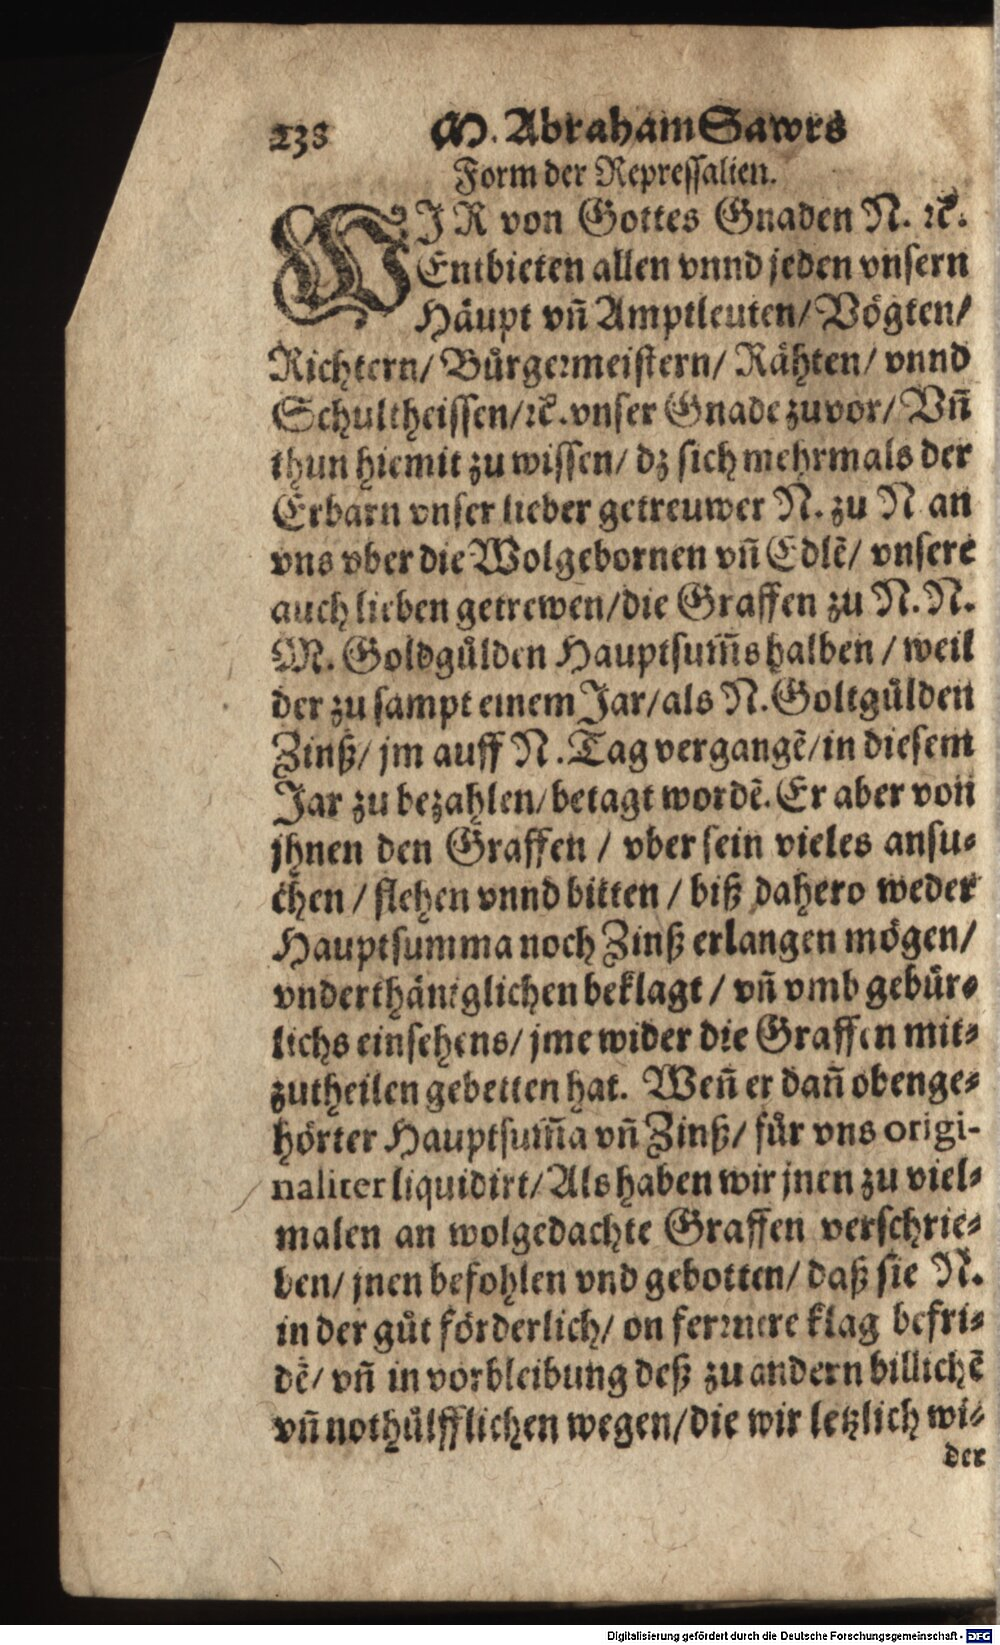 238 M. Abraham Sawrs
Form der Repressalien.
WJR von Gottes Gnaden N. ꝛc.
Entbieten allen vnnd jeden vnsern
Häupt vñ Amptleuten/ Vögten/
Richtern/ Bürgermeistern/ Rähten/ vnnd
Schultheissen/ ꝛc. vnser Gnade zuvor/ Vñ
thun hiemit zu wissen/ dz sich mehrmals der
Erbarn vnser lieber getreuwer N. zu N an
vns vber die Wolgebornen vñ Edlẽ/ vnsere
auch lieben getrewen/ die Graffen zu N. N.
M. Goldgülden Hauptsum̃s halben / weil
der zu sampt einem Jar/ als N. Goltgülden
Zinß/ jm auff N. Tag vergangẽ/ in diesem
Jar zu bezahlen/ betagt wordẽ. Er aber von
jhnen den Graffen / vber sein vieles ansu-
chen / flehen vnnd bitten / biß dahero weder
Hauptsumma noch Zinß erlangen mögen/
vnderthäniglichen beklagt / vñ vmb gebür-
lichs einsehens/ jme wider die Graffen mit-
zutheilen gebetten hat. Weñ er dañ obenge-
hörter Hauptsum̃a vñ Zinß/ für vns origi-
naliter liquidirt/ Als haben wir jnen zu viel-
malen an wolgedachte Graffen verschrie-
ben/ jnen befohlen vnd gebotten/ daß sie N.
in der güt förderlich/ on fernnere klag befri-
dẽ/ vñ in vorbleibung deß zu andern billichẽ
vñ nothülfflichen wegen/ die wir letzlich wi-
der
Digitalisierung gefördert durch die Deutsche Forschungsgemeinschaft - DFG